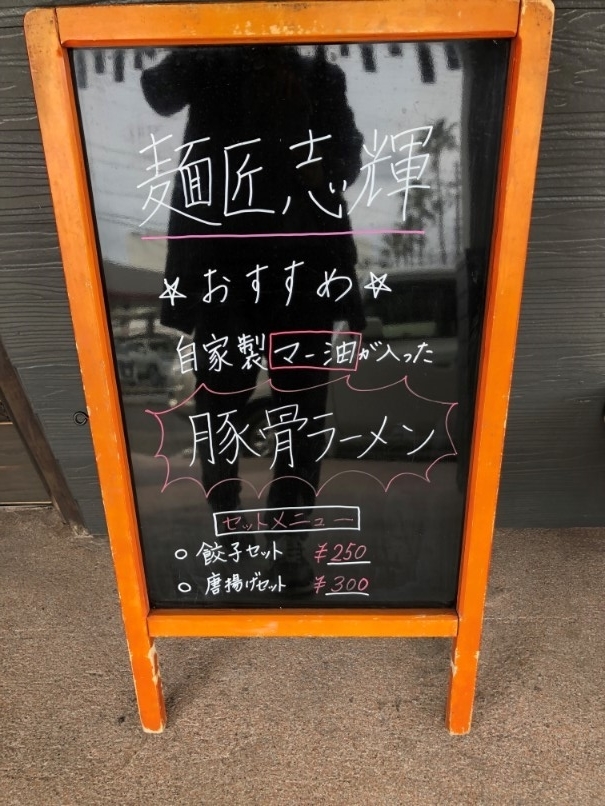 麺匠志輝
☆おすすめ☆
自家製マー油が入った
豚骨ラーメン
セットメニュー
○餃子セット ¥250
○唐揚げセット ¥300